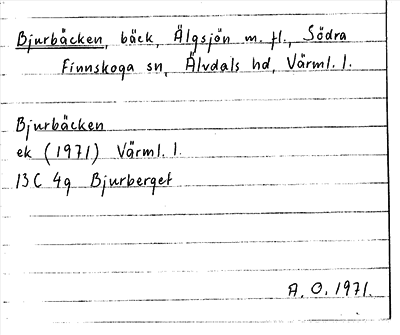 Bjurbäcken, bäck, Älgsjön m. fl., Södra
Finnskoga sn, Älvdals hd, Värml. l.
Bjurbäcken
ek (1971) Värml. l.
13C 4g Bjurberget
A. O. 1971.